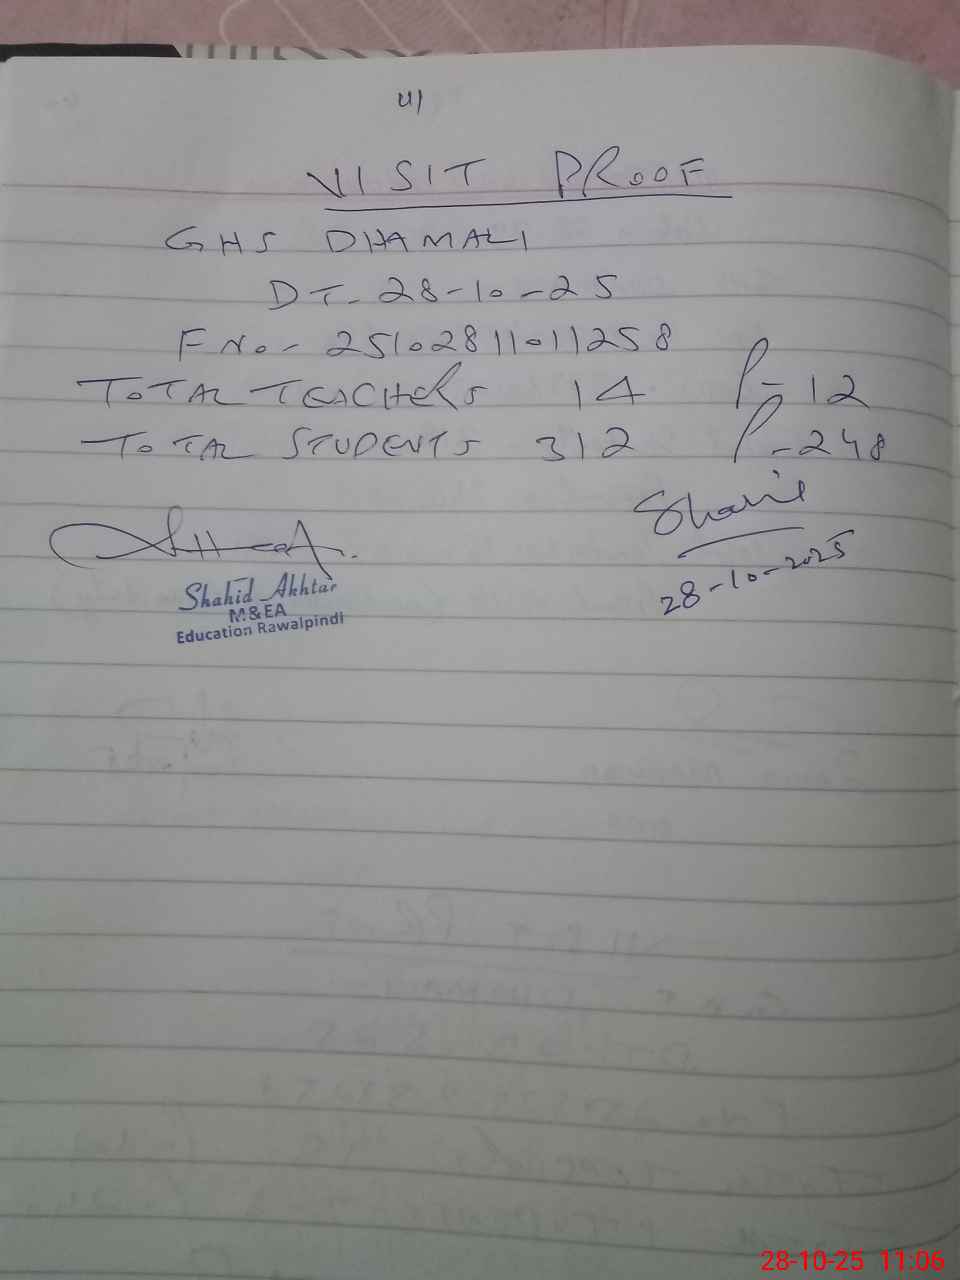 41
VISIT PROOF
GHS DHAMALI
DT- 28-10-25
F No- 25102811011258
TOTAL TEACHERS 14 P-12
TOTAL STUDENTS 312 P-248
28-10-2025
Shahid Akhtar
M&EA
Education Rawalpindi
28-10-25 11:06